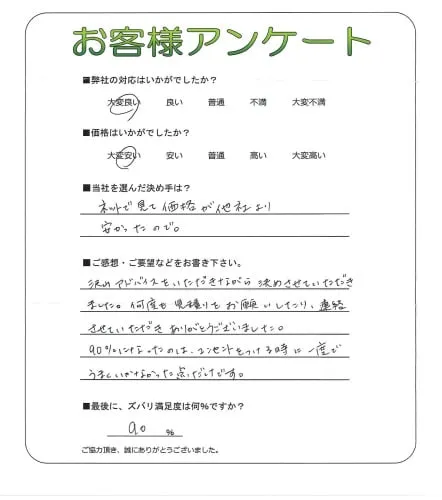 お客様アンケート
■弊社の対応はいかがでしたか？
大変良い 良い 普通 不満 大変不満
■価格はいかがでしたか？
大変安い 安い 普通 高い 大変高い
■当社を選んだ決め手は？
ネットで見て価格が他社より
安かったので。
■ご感想・ご要望などをお書き下さい。
アドバイスをいただきながら決めさせていただき
ました。何度も見積りをお願いしたり、連絡
させていただきありがとうございました。
90%になったのは、コンセントをつける時に一度で
うまくいかなかった点だけです。
■最後に、ズバリ満足度は何%ですか？
90 %
ご協力頂き、誠にありがとうございました。